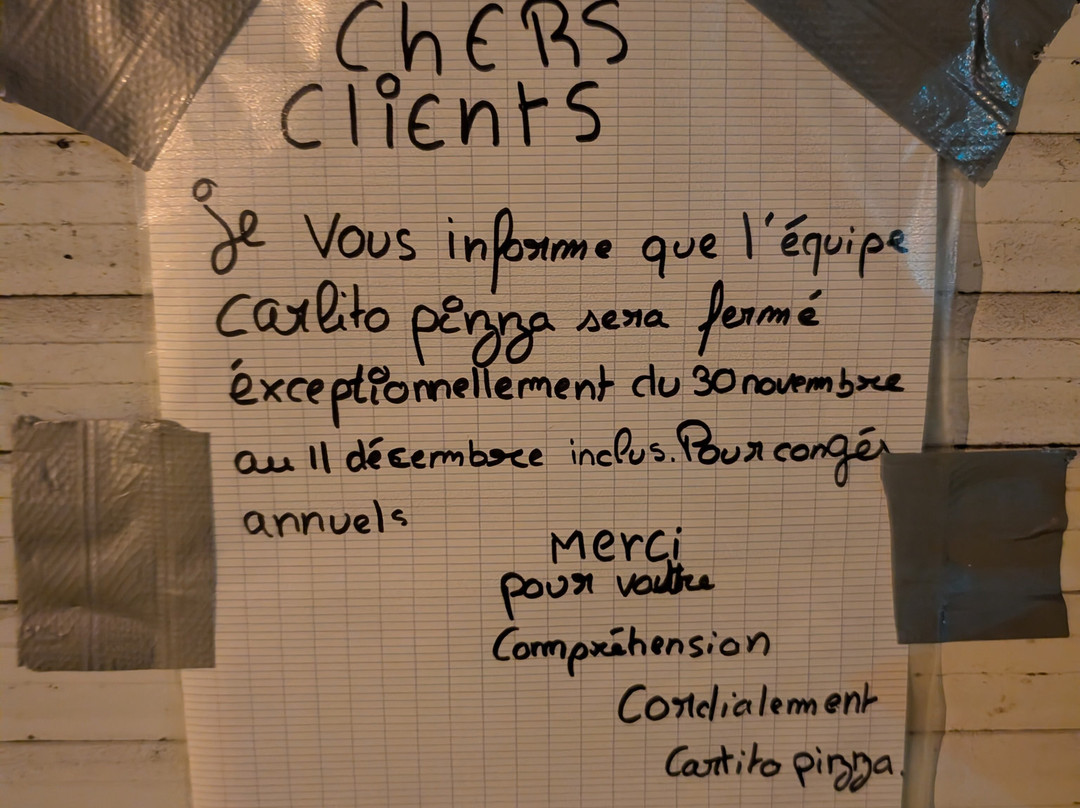 CHERS
Clients
je Vous informe que l'équipe
Carlito pizza sera fermé
éxceptionnellement du 30 novembre
au 11 décembre inclus. Pour congés
annuels
Merci
pour vottre
Compréhension
Cordialement
Carlito pizza.